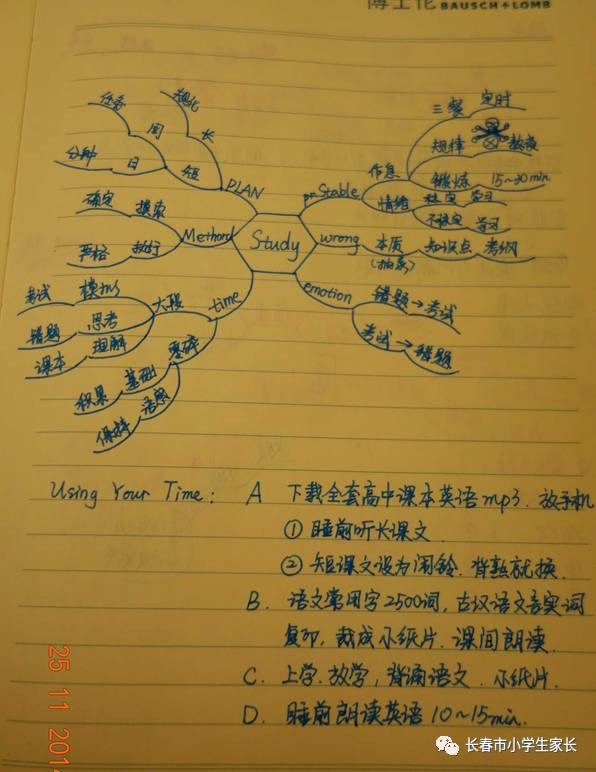 博士伦 BAUSCH+LOMB
任务
规化
周
长
分钟
日
短
PLAN
确定
摸索
严格
执行
Methord
考试
模拟
错题
思考
课本
理解
大段
积累
基础
保持
语感
零碎
time
Study
Stable
作息
三餐
定时
规律
熬夜
锻炼
15~30min
情绪
稳定
学习
不稳定
学习
wrong
本质
(抽象)
知识点
考纲
emotion
错题→考试
考试→错题
Using Your Time: A 下载全套高中课本英语mp3. 放手机
① 睡前听长课文.
② 短课文设为闹铃. 背熟就换.
B. 语文常用字2500词, 古汉语文言实词
复印, 裁成小纸片. 课间朗读.
C. 上学. 放学, 背诵语文. 小纸片.
D. 睡前朗读英语10~15min.
25 11 201
长春市小学生家长